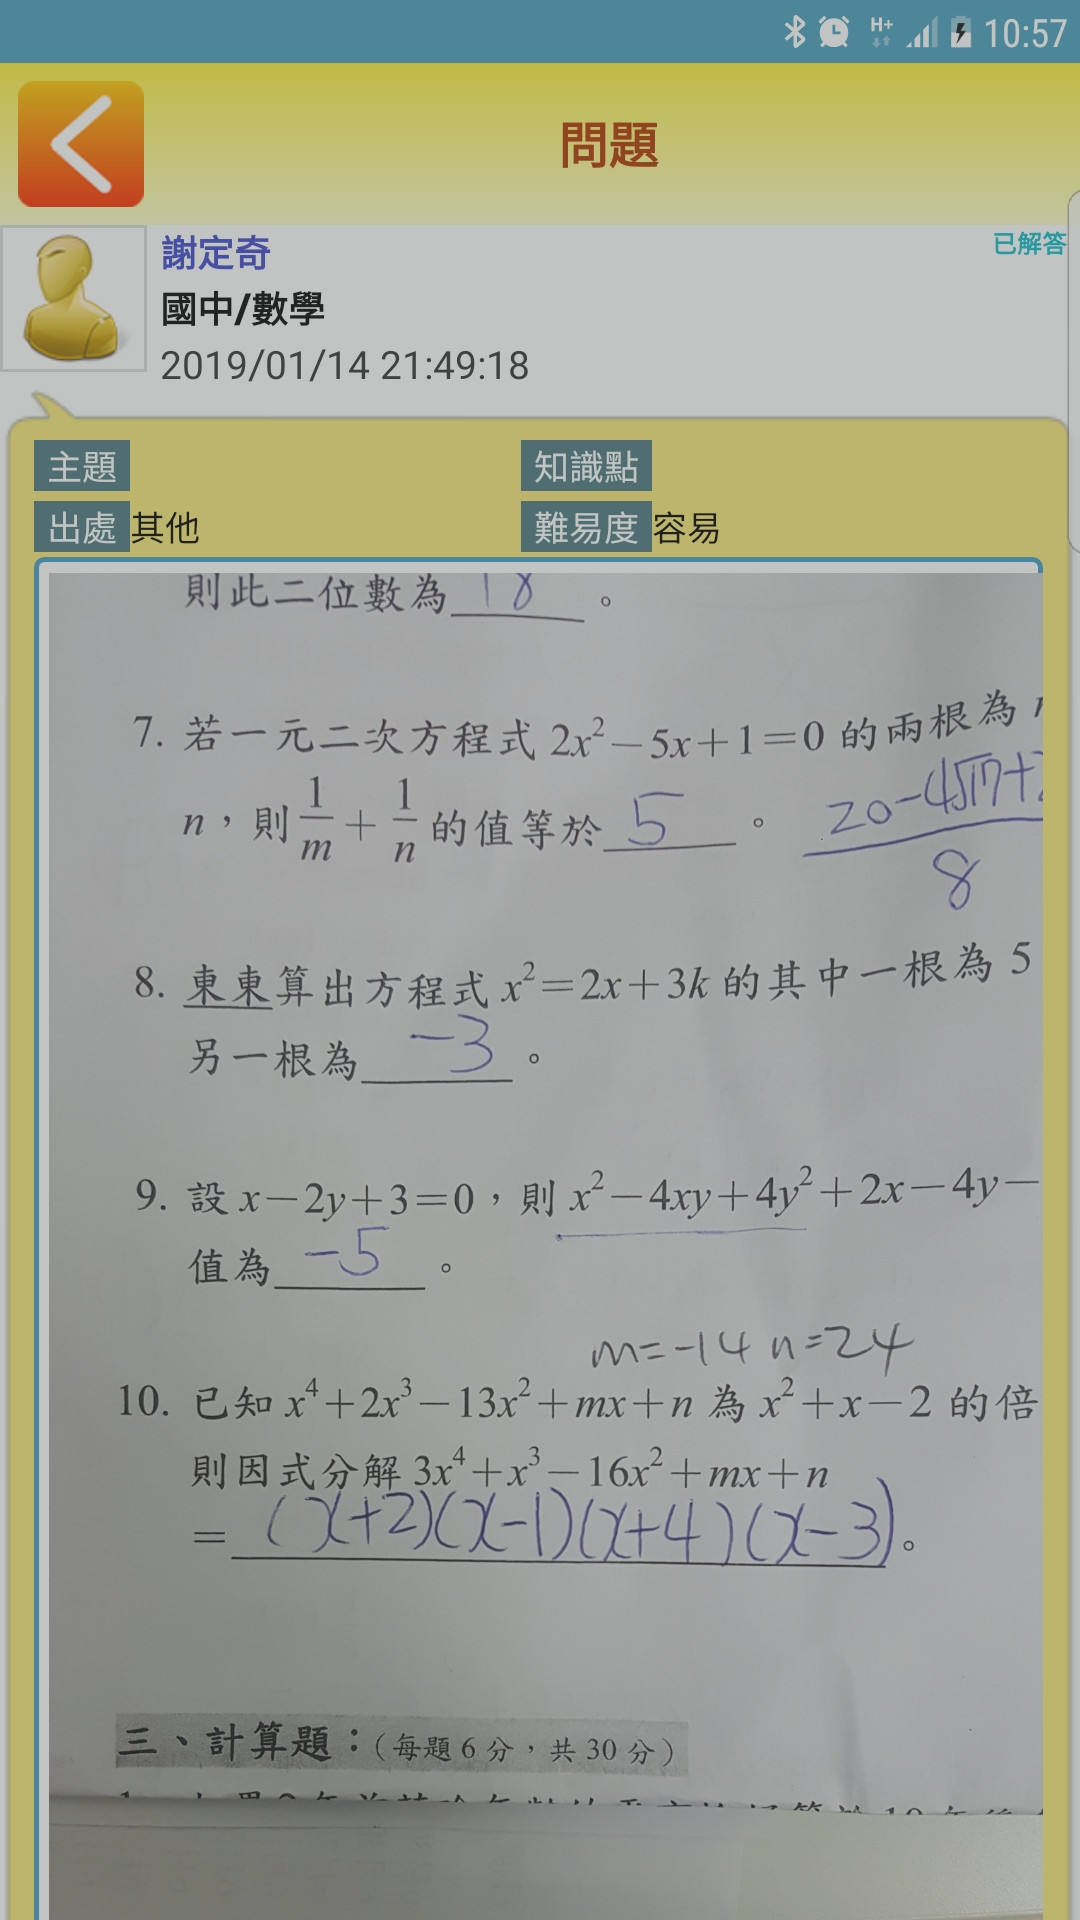 H+ 10:57
問題
謝定奇
已解答
國中/數學
2019/01/14 21:49:18
主題 知識點
出處 其他 難易度 容易
則此二位數為 18 。
7. 若一元二次方程式 2x²−5x+1=0 的兩根為
n,則 1/m + 1/n 的值等於 5 。 20-4√17+ / 8
8. 東東算出方程式 x²=2x+3k 的其中一根為 5
另一根為 -3 。
9. 設 x−2y+3=0,則 x²−4xy+4y²+2x−4y−
值為 -5 。
m=-14 n=24
10. 已知 x⁴+2x³−13x²+mx+n 為 x²+x−2 的倍
則因式分解 3x⁴+x³−16x²+mx+n
= (x+2)(x-1)(x+4)(x-3) 。
三、計算題:(每題 6 分,共 30 分)